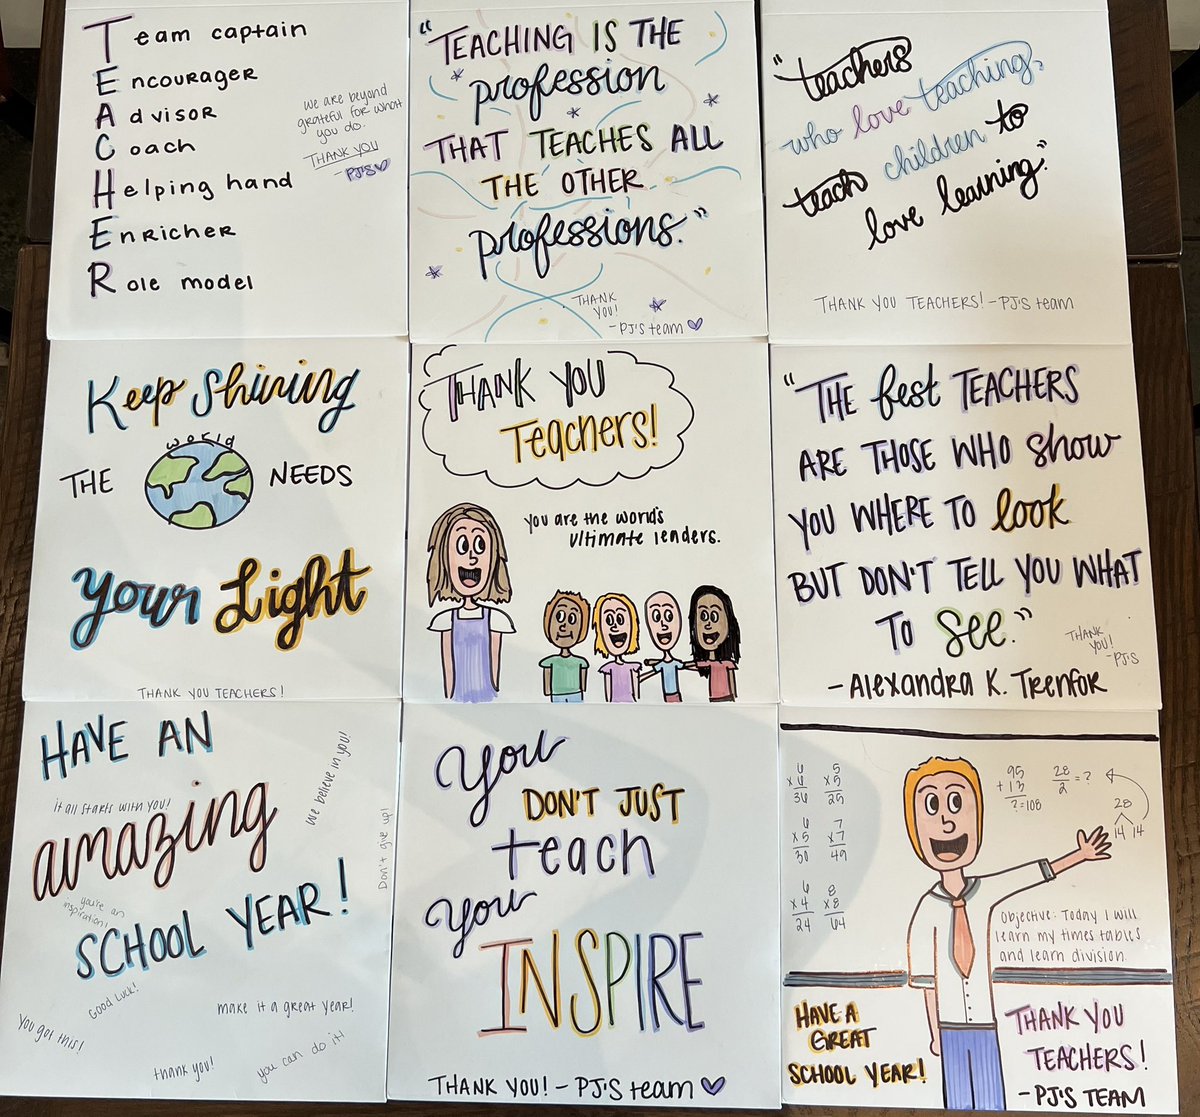 Team captain
Encourager
Advisor
Coach
Helping hand
Enricher
Role model
We are beyond
grateful for what
you do.
THANK YOU
- PJ'S
"TEACHING IS THE
profession
THAT TEACHES ALL
THE OTHER
professions."
THANK
YOU!
- PJ'S team
"teachers
who love teaching,
teach children to
love learning."
THANK YOU TEACHERS! - PJ'S team
Keep Shining
THE world NEEDS
Your Light
THANK YOU TEACHERS!
THANK YOU
Teachers!
you are the world's
ultimate leaders.
"THE best TEACHERS
ARE THOSE WHO show
YOU WHERE TO look
BUT DON'T TELL YOU WHAT
TO see."
THANK
YOU!
- PJ'S
- Alexandra K. Trenfor
HAVE AN
it all starts with you!
amazing
you're an
inspiration!
SCHOOL YEAR!
We believe in you!
Don't give up!
Good luck!
make it a great year!
You got this!
thank you!
you can do it!
You
DON'T JUST
teach
You
INSPIRE
THANK YOU! - PJ'S team
6 5
x 6 x 5
36 25
6 7
x 5 x 7
30 49
6 8
x 4 x 8
24 64
95
+ 13
?=108
28
2 = ?
28
14 14
Objective: Today I will
learn my times tables
and learn division.
HAVE A
GREAT
SCHOOL YEAR!
THANK YOU
TEACHERS!
- PJ'S TEAM